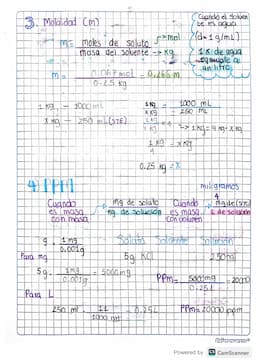 3. Molalidad (m)
Cuando el solvente es agua
(d = 1 g/mL)
1 K de agua equivale a un litro
m = moles de soluto → mol
masa del solvente → kg
m = 0.067 mol = 0.265 m
1 kg - 1000 mL
x kg - 250 mL (STE)
1 kg = 1000 mL
x kg 250 mL
1 kg = 4 → 1 kg = 4 kg · x kg
1 kg = x kg
4
0.25 kg = x
4. PPM
miligramos
Cuando es masa con masa
mg de soluto
kg de solución
Cuando es masa con volumen
mg de (sto)
L de solución
g · 1 mg
0.001g
Soluto Solvente Solución
Para mg
5g KCl 250 ml
5g · 1 mg = 5000 mg
0.001g
PPm = 5000mg = 20000
0.25 L
Para L
250 ml · 1 L = 0.25 L
1000 ml
PPm = 20000 ppm
Powered by CS CamScanner